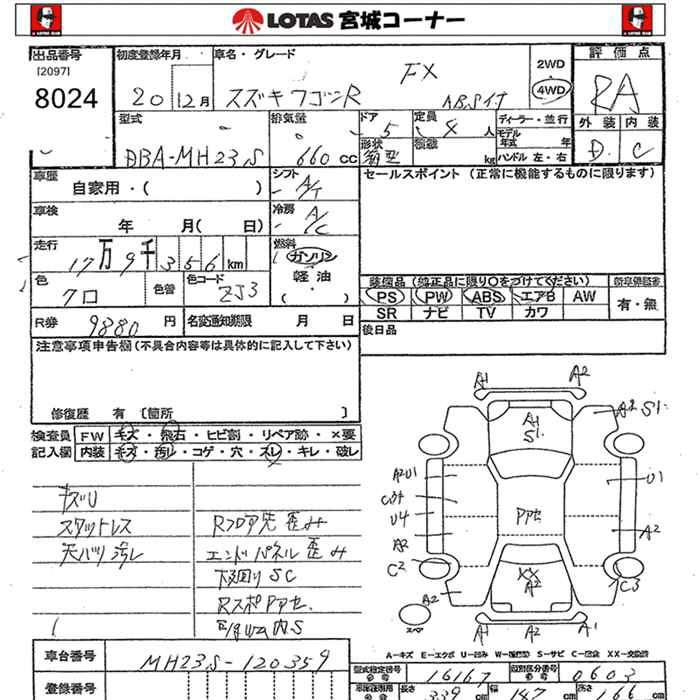 LOTAS 宮城コーナー
出品番号
[2097]
8024
初度登録年月
20 12月
車名・グレード
スズキ ワゴンR
FX
ABS付
2WD
4WD
評価点
RA
外装 内装
D C
型式
DBA-MH23S
排気量
660 cc
ドア
5
定員
4 人
形状
箱型
積載
kg
ディーラー・並行
モデル
年式 年
ハンドル 左・右
車歴
自家用・( )
シフト
A/T
車検
年 月( 日)
冷房
A/C
走行
17万9千356 km
燃料
ガソリン
軽油
( ・ )
色
クロ
色替
色コード
ZJ3
R券
9880 円
名変通知期限 月 日
セールスポイント(正常に機能するものに限ります)
装備品(純正品に限り○をつけてください)
PS PW ABS エアB AW
SR ナビ TV カワ
新車保証書
有・無
後日品
注意事項申告欄(不具合内容等は具体的に記入して下さい)
修復歴 有 [箇所 ]
検査員
記入欄
FW キズ・飛石・ヒビ割・リペア跡・×要
内装 キズ・汚レ・コゲ・穴・スレ・キレ・破レ
キズU
スタットレス
天バリ汚レ
Rフロア先 歪み
エンドパネル歪み
下廻りSC
RスポPアセ
A1 A2
A1
S1
A2 S1
A2U1
U4
A2
C2
A2
Pアセ
XX
A2
U1
A2
C3
スペア
A1 A2 A1
A-キズ E-エクボ U-凹み W-補修跡 S-サビ C-腐食 XX-交換済
車台番号
MH23S-120359
登録番号
型式指定番号
16167
類別区分番号
0603
長さ
339 cm
幅
147
高さ
166 cm